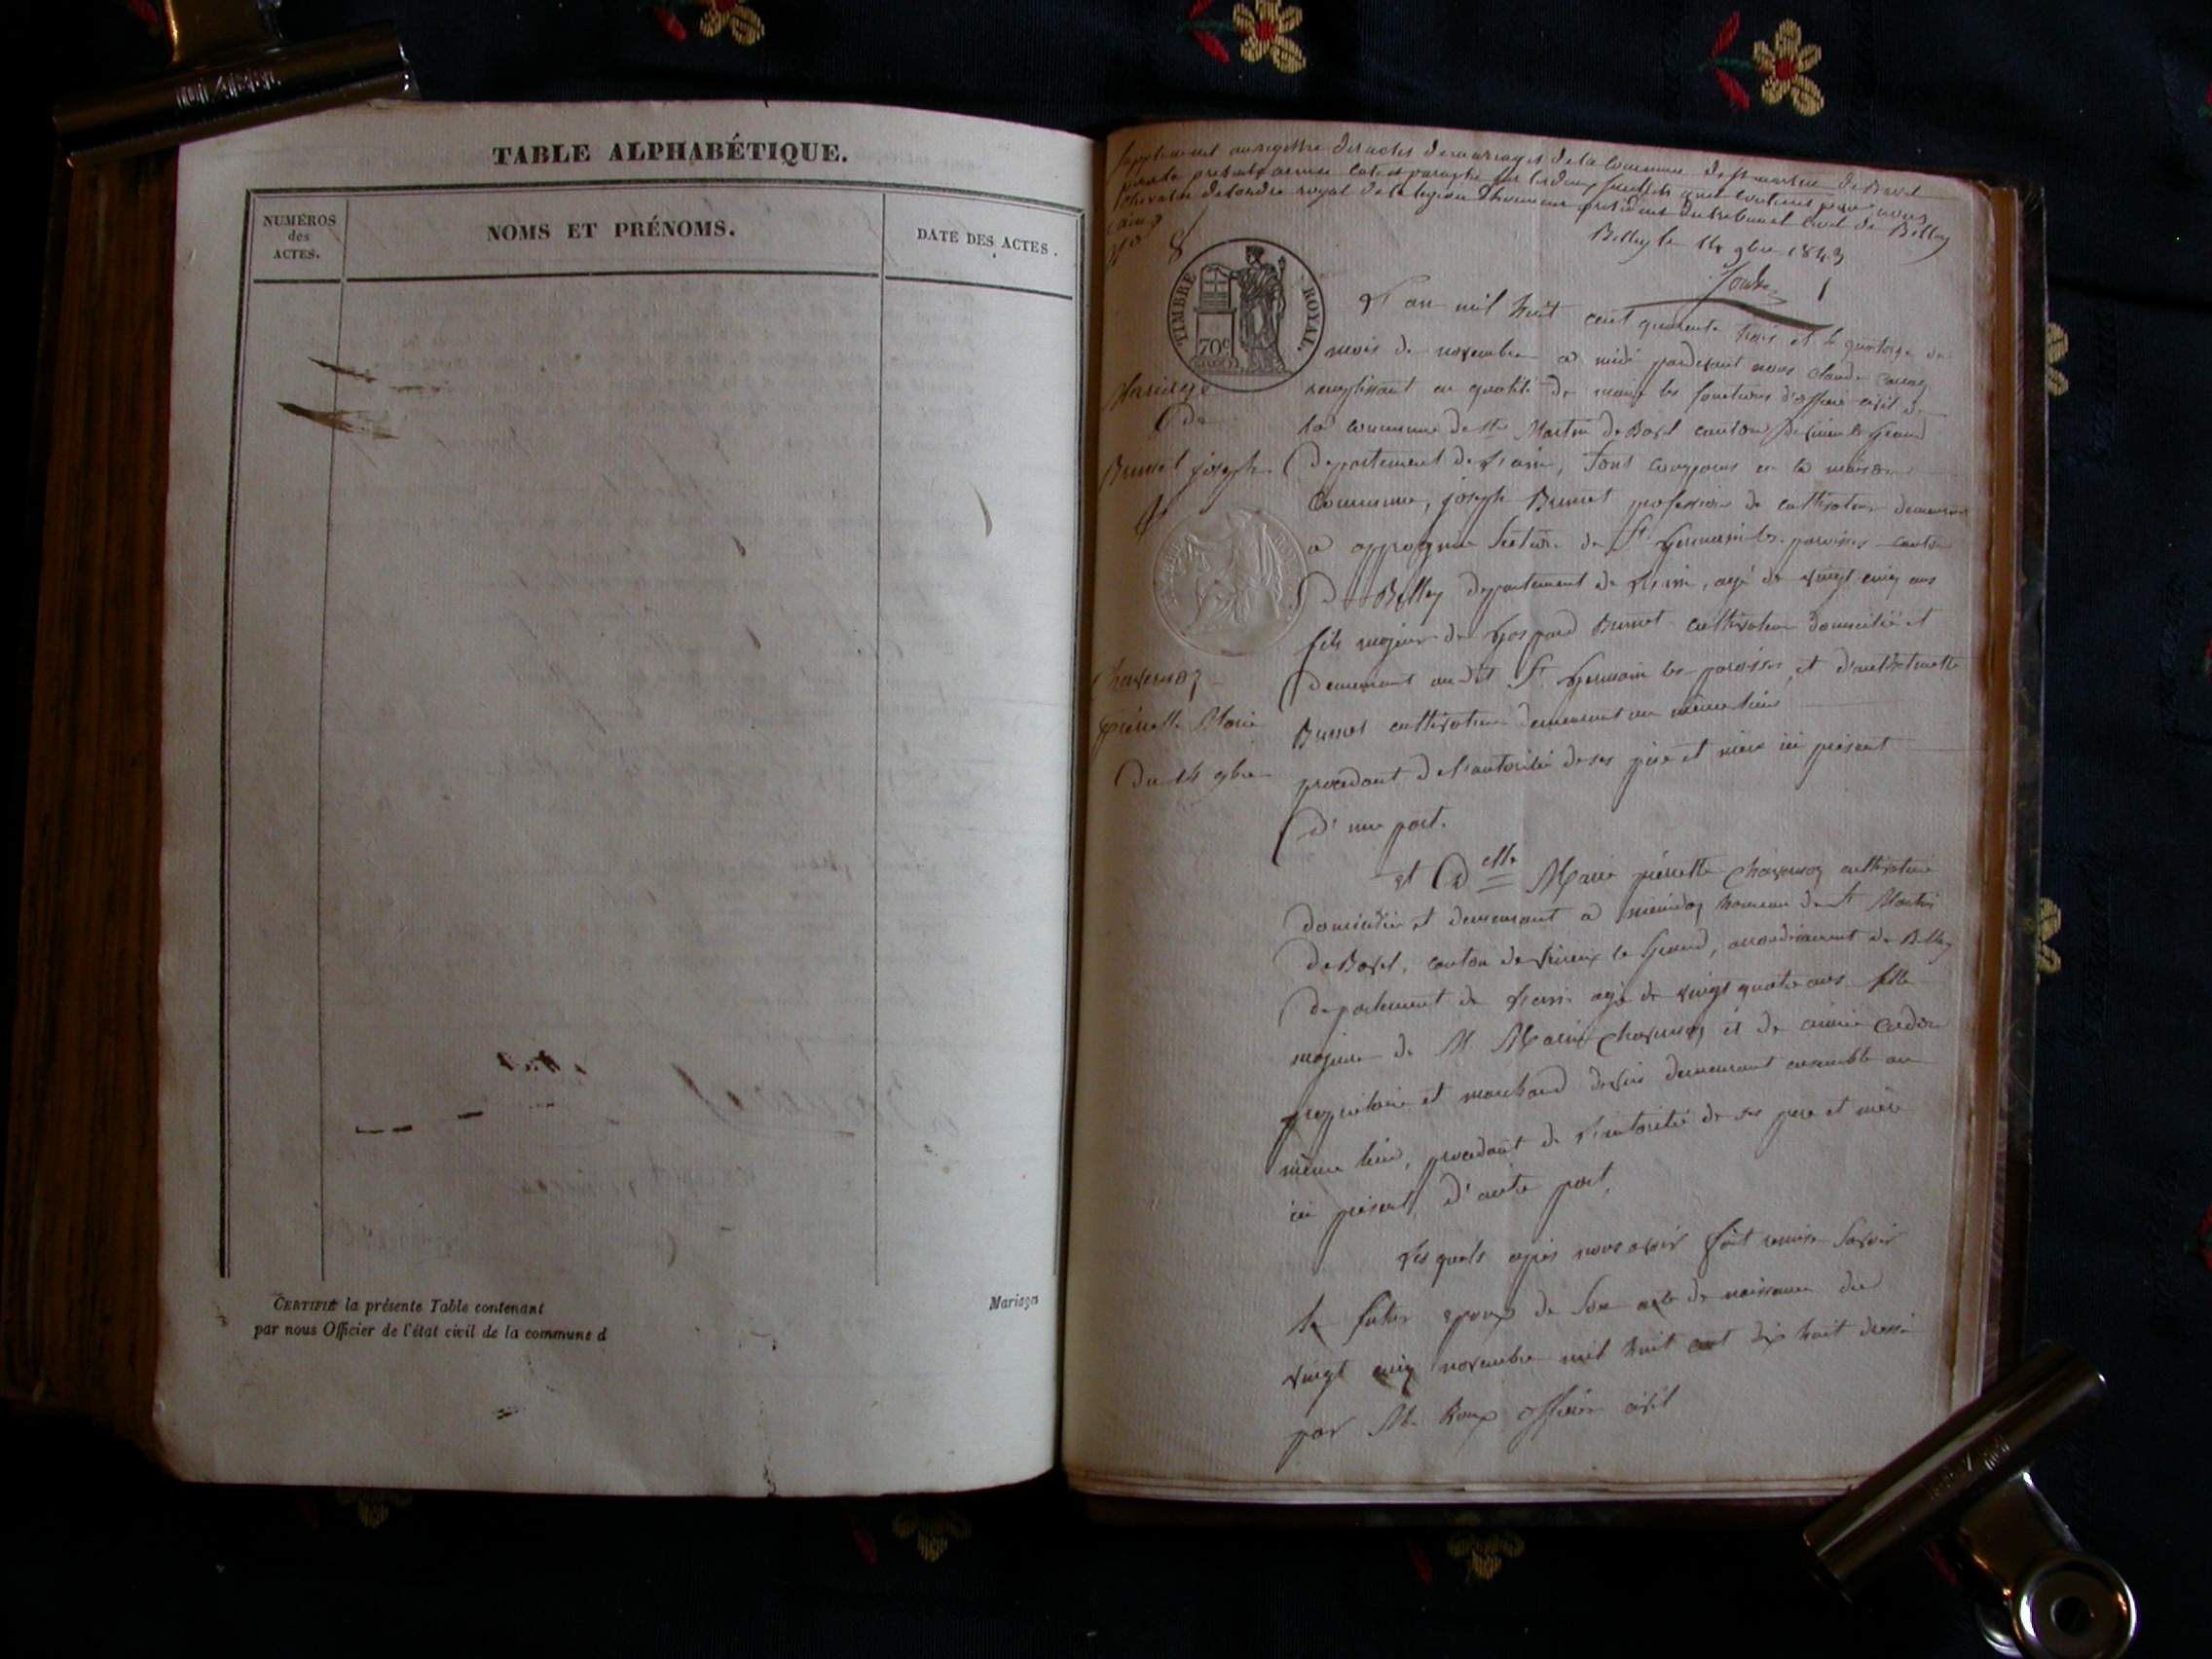 TABLE ALPHABÉTIQUE.
NUMÉROS
des
ACTES.
NOMS ET PRÉNOMS.
DATE DES ACTES.
CERTIFIÉ la présente Table contenant
par nous Officier de l'état civil de la commune d
Mariages
Supplement au registre des actes de mariages de la commune de St martin de Bavel
pour la présente année coté et paraphé sur les deux feuillets qu'il contient par nous
chevalier de l'ordre royal de la legion d'honneur president du tribunal civil de Belley
Belley le 14 9bre 1843
TIMBRE ROYAL.
70c
Mariage
de
Brunet joseph
et
Chavernoz
pierrette Marie
Du 14 9bre
L'an mil huit cent quarante trois et le quatorze du
mois de novembre a midi pardevant nous Claude
remplissant en qualité de maire les fonctions d'officier civil de
la commune de St Martin de Bavel canton de virieu le Grand
departement de l'ain, sont comparus en la maison
Commune, joseph Brunet profession de cultivateur demeurant
a appregnin section de St Germain les paroisses canton
De Belley departement de l'ain, agé de vingt cinq ans
fils majeur de Gaspard Brunet cultivateur domicilié et
demeurant au dit St Germain les paroisses, et d'anthelmette
Brunet cultivatrice demeurant au même lieu
procedant de l'autorité de ses père et mère ici présent
d'une part.
et Delle Marie pierrette Chavernoz cultivatrice
domiciliée et demeurant a hameau de St Martin
de Bavel, canton de virieux le Grand, arrondissement de Belley
departement de l'ain agée de vingt quatre ans fille
majeure de M. Marin Chavernoz et de
propriétaire et marchand de vin demeurant ensemble au
même lieu, procedant de l'autorité de ses père et mère
ici présent, d'autre part,
Lesquels après nous avoir fait remise savoir
le futur epoux de son acte de naissance du
vingt cinq novembre mil huit cent dix huit dressé
par Mr Roux officier civil